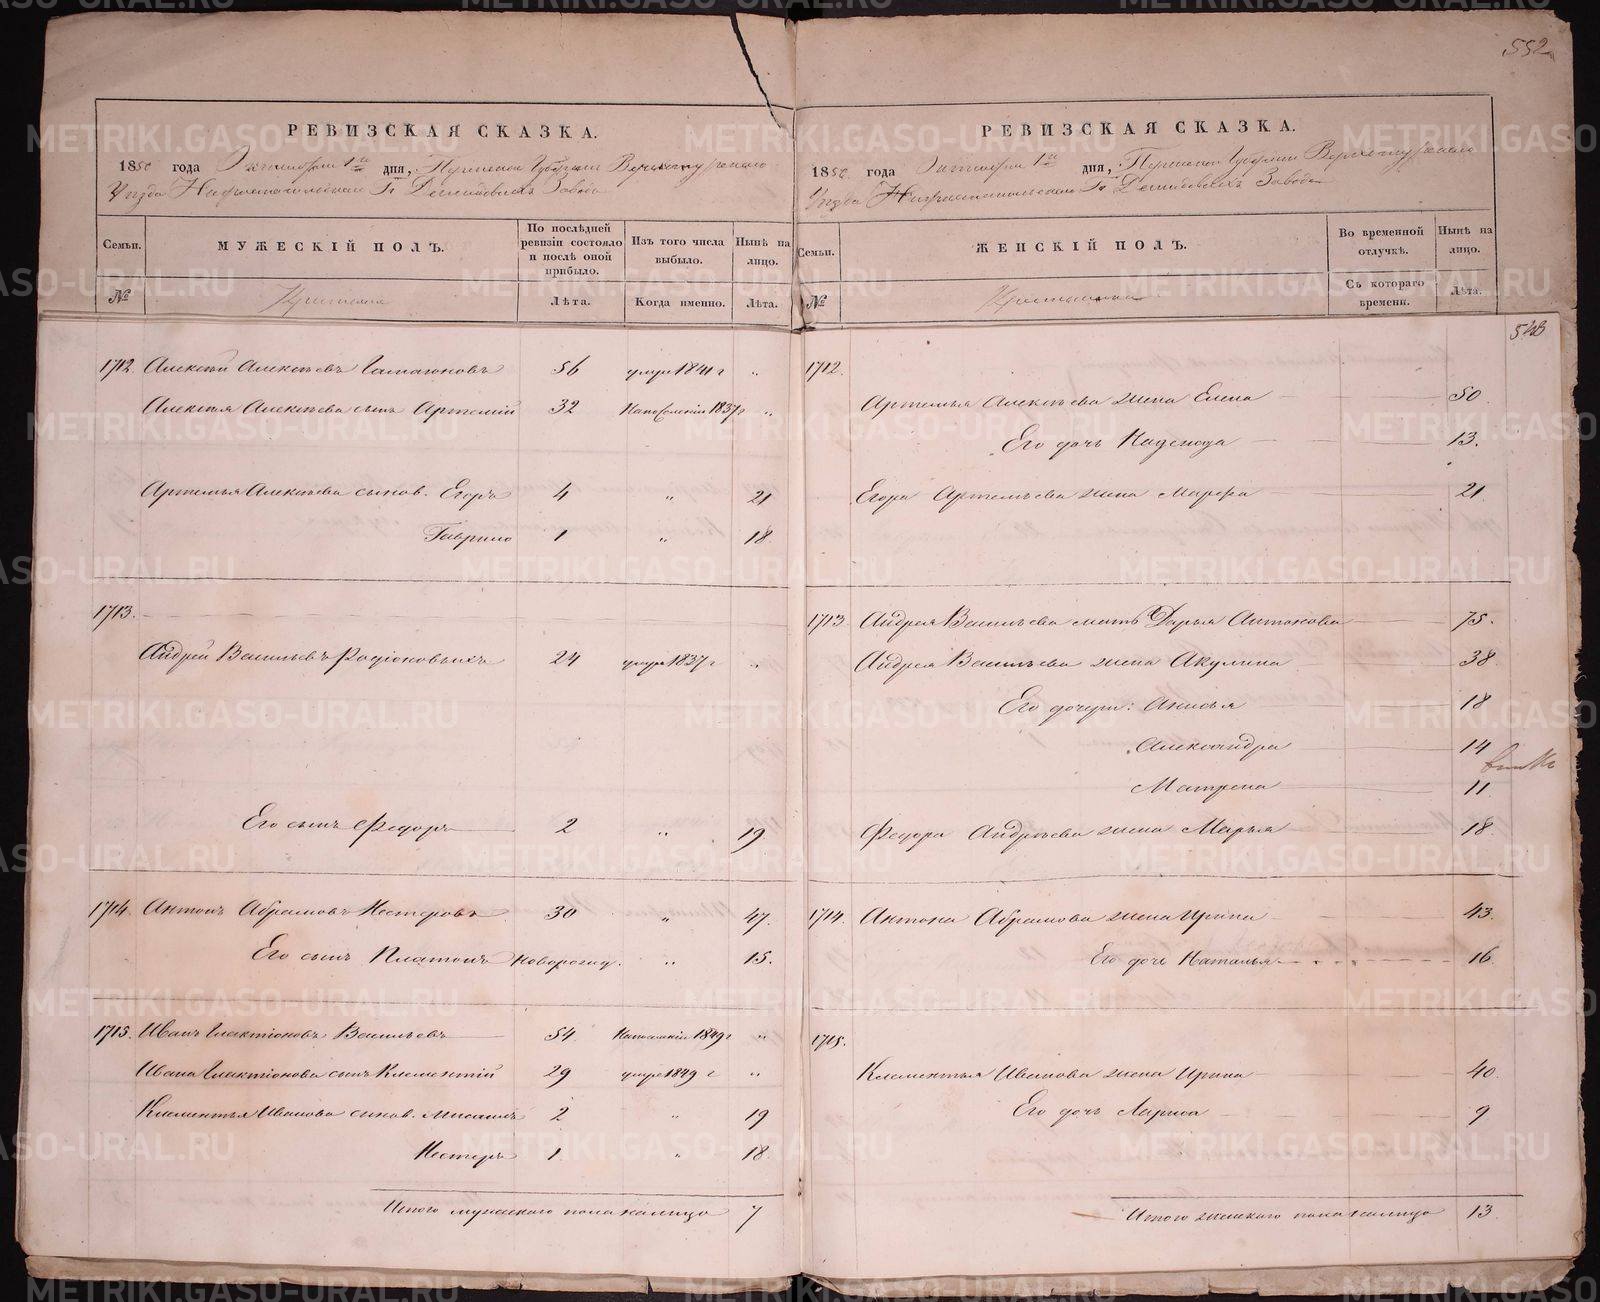 552
РЕВИЗСКАЯ СКАЗКА.
1850 года Октября 1го дня, Пермской Губернии Верхотурскаго
Уезда Нижнетагильскаго Гг Демидовыхъ Завода
Семьи.
МУЖЕСКІЙ ПОЛЪ.
По послѣдней ревизіи состояло и послѣ оной прибыло.
Изъ того числа выбыло.
Нынѣ на лицо.
№
Крестьяне
Лѣта.
Когда именно.
Лѣта.
1712. Алексѣй Алексѣевъ 56 умре 1841 г "
Алексѣя Алексѣева сынъ Артемій 32 На поселеніи 1837 г "
Артемья Алексѣева сынов. Егоръ 4 " 21
Гаврило 1 " 18
1713.
Андрей Васильевъ Родіоновыхъ 24 умре 1837 г "
Его сынъ Федоръ 2 " 19
1714. Антонъ Абрамовъ Нестеровъ 30 " 47.
Его сынъ Платонъ новорожд. " 15.
1715. Иванъ Галактіоновъ Васильевъ 54 На поселеніи 1849 г "
Ивана Галактіонова сынъ Клементій 29 умре 1849 г "
Клементья Иванова сынов. Мисаилъ 2 " 19
Нестеръ 1 " 18
Итого мужескаго пола налицо 7
РЕВИЗСКАЯ СКАЗКА.
1850 года Октября 1го дня, Пермской Губерніи Верхотурскаго
Уезда Нижнетагильскаго Гг Демидовыхъ Завода
Семьи.
ЖЕНСКІЙ ПОЛЪ.
Во временной отлучкѣ.
Нынѣ на лицо.
№
Крестьянки
Съ котораго времени.
Лѣта.
543
1712.
Артемья Алексѣева жена Елена 50
Его дочь Надежда 13.
Егора Артемьева жена Марфа 21
1713 Андрея Васильева мать Дарья Антонова 75.
Андрея Васильева жена Акулина 38
Его дочери: Анисья 18
Александра 14
Матрена 11
Федора Андреева жена Марья 18
1714. Антона Абрамова жена Ирина 43.
Его дочь Наталья 16
1715.
Клементья Иванова жена Ирина 40
Его дочь Лариса 9
Итого женскаго пола налицо 13
METRIKI.GASO-URAL.RU